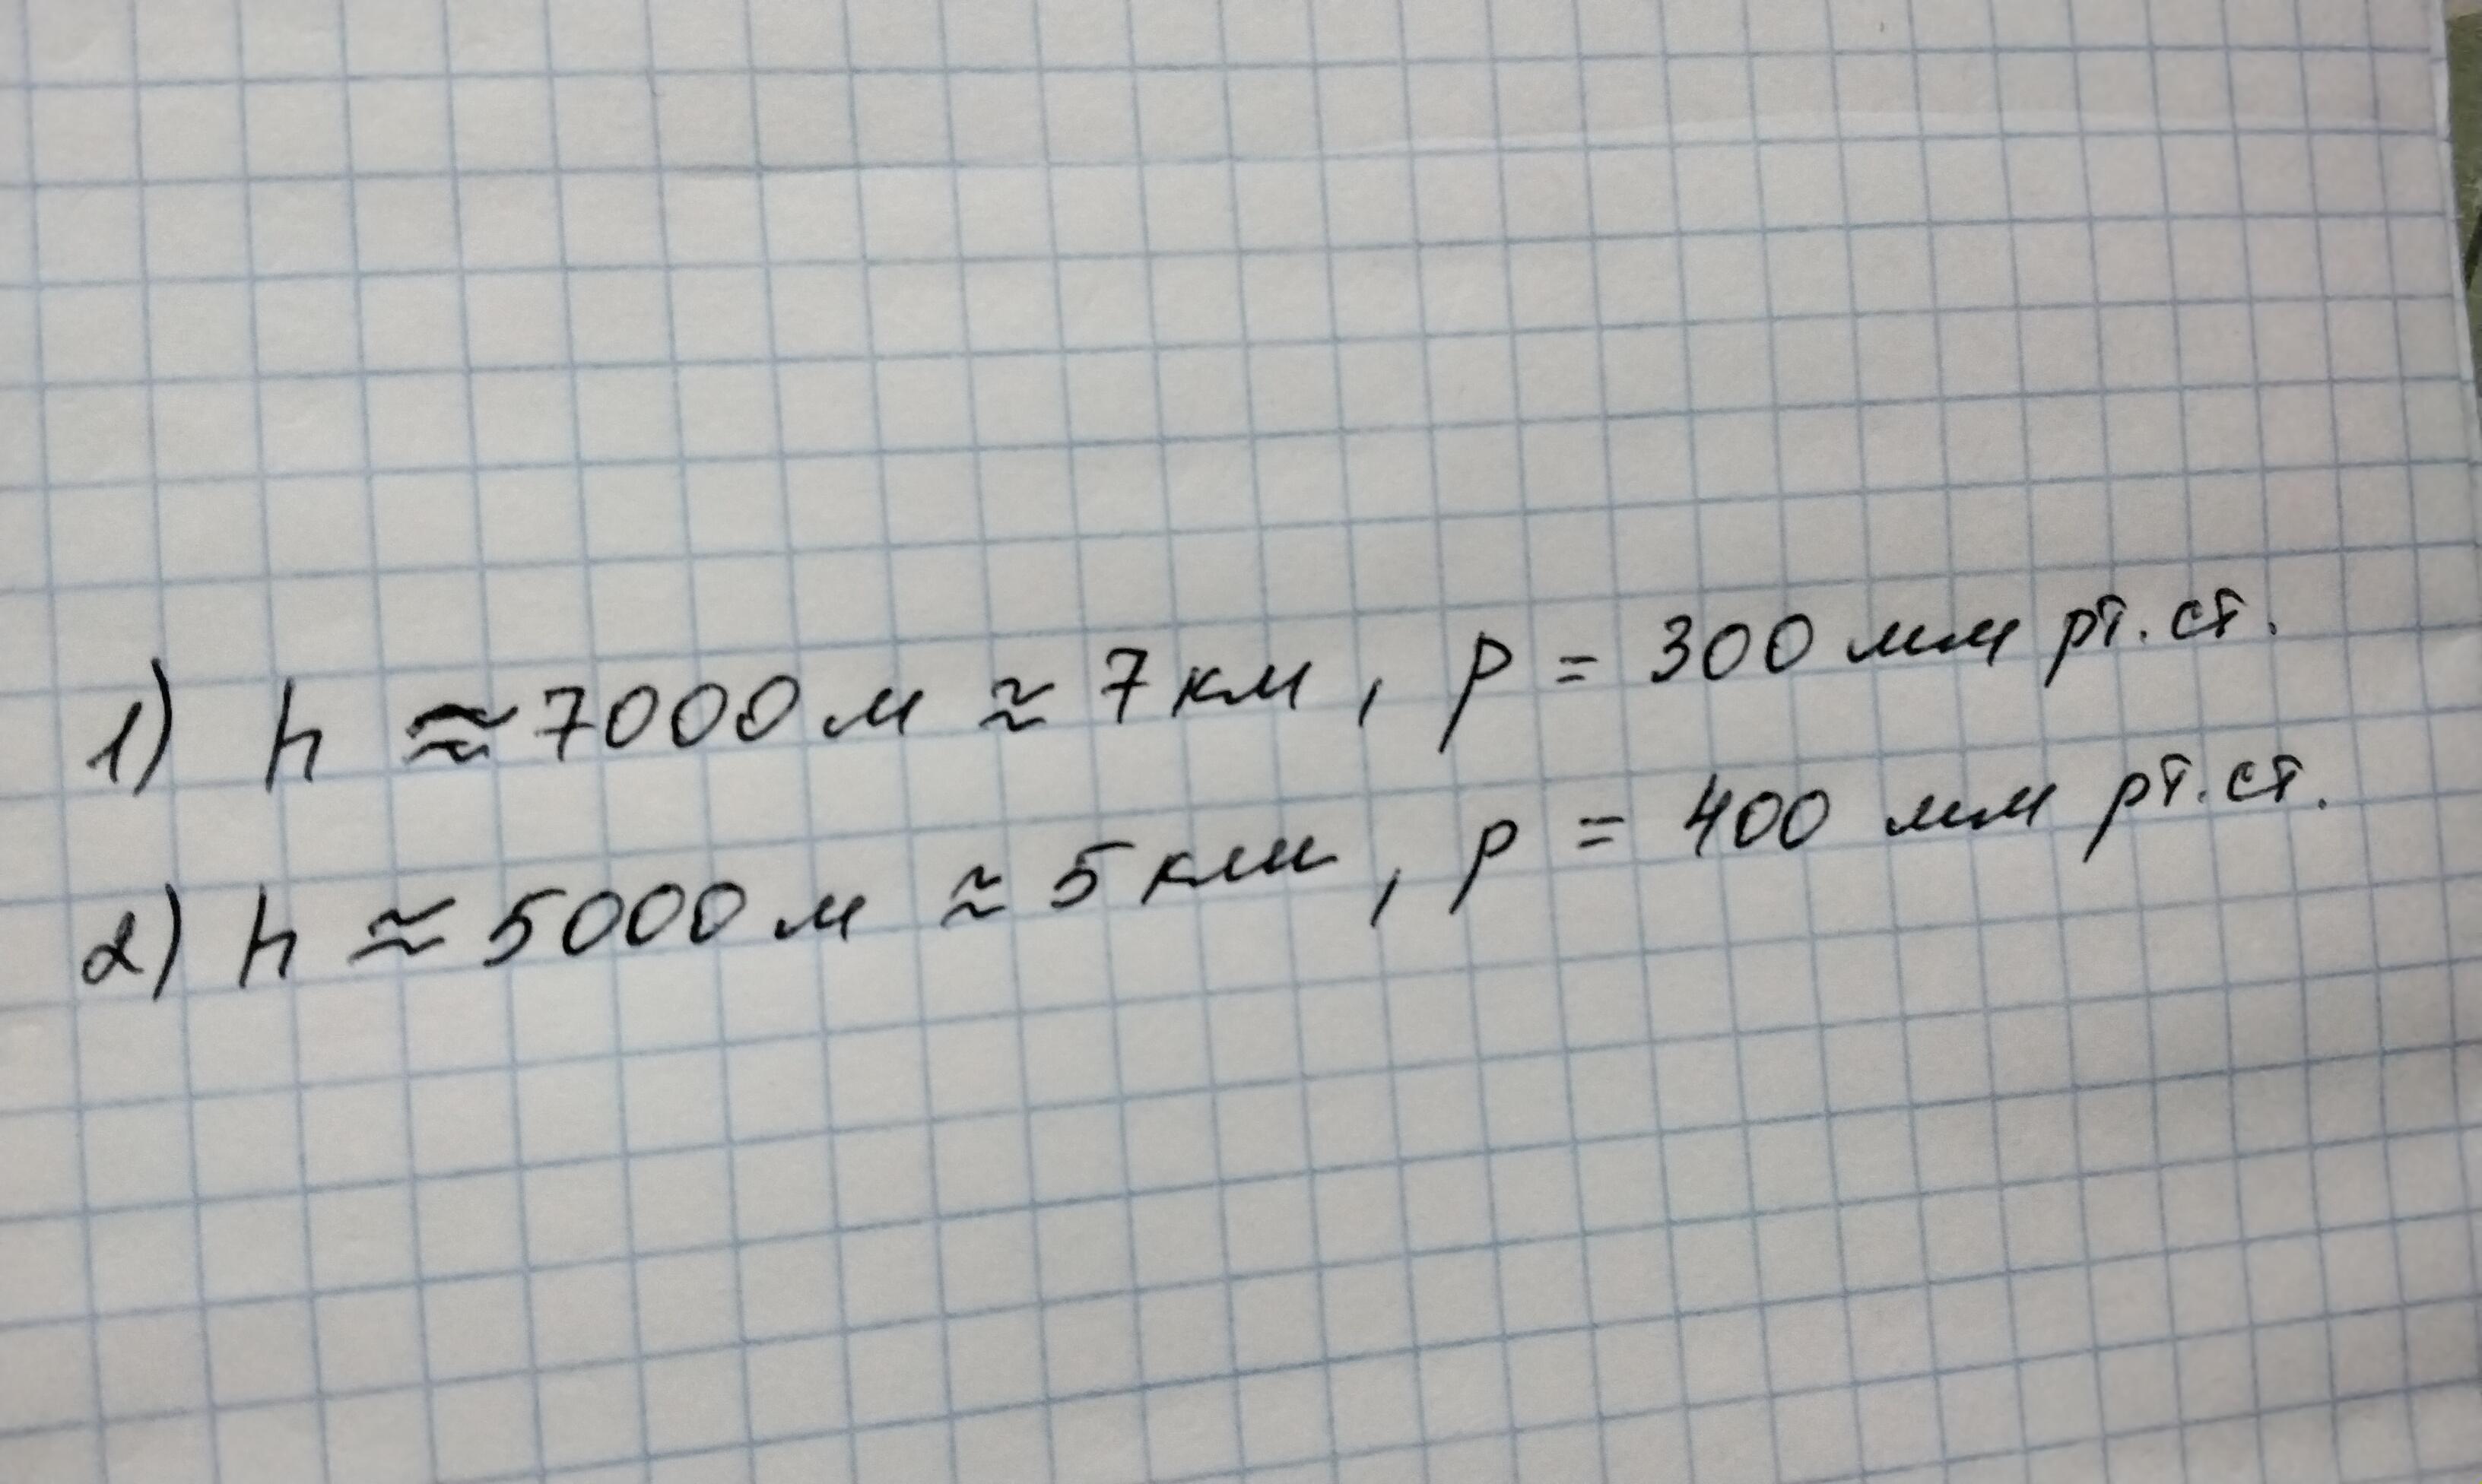 1) h ≈ 7000 м ≈ 7 км, p = 300 мм рт. ст.
2) h ≈ 5000 м ≈ 5 км, p = 400 мм рт. ст.